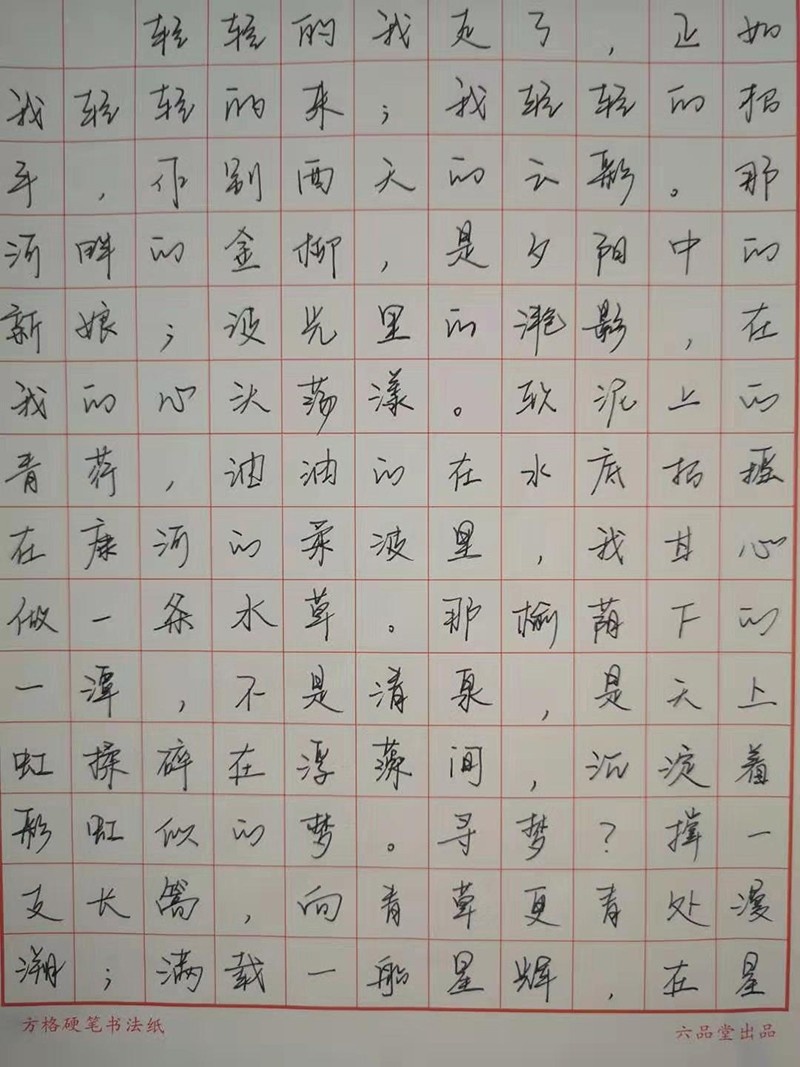 轻轻的我走了，正如
我轻轻的来；我轻轻的招
手，作别西天的云彩。那
河畔的金柳，是夕阳中的
新娘；波光里的滟影，在
我的心头荡漾。软泥上的
青荇，油油的在水底招摇
在康河的柔波里，我甘心
做一条水草。那榆荫下的
一潭，不是清泉，是天上
虹揉碎在浮藻间，沉淀着
彩虹似的梦。寻梦？撑一
支长篙，向青草更青处漫
溯；满载一船星辉，在星
方格硬笔书法纸 六品堂出品